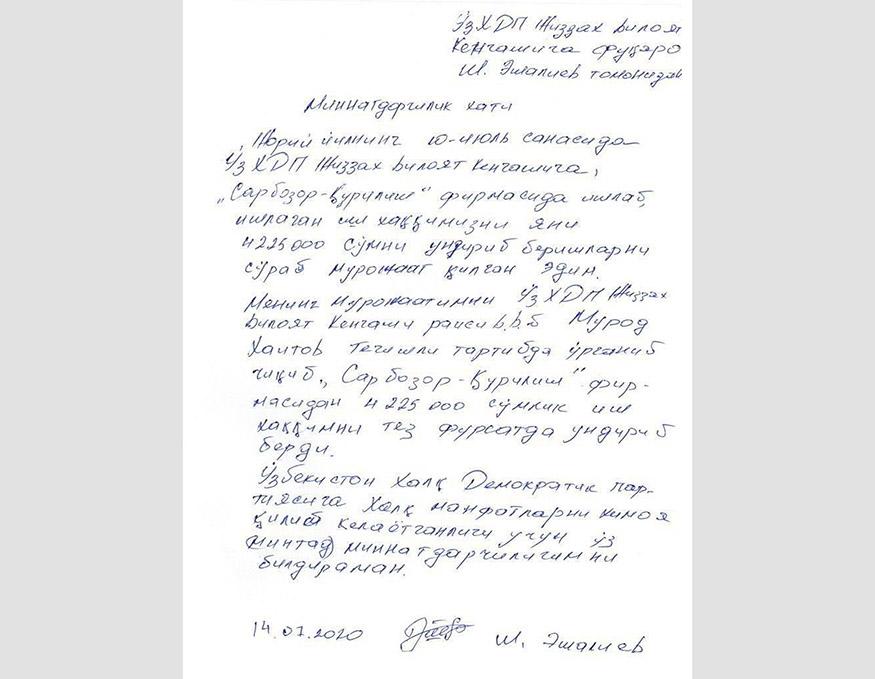 ЎзХДП Жиззах вилоят
Кенгашига фуқаро
Ш. Эшалиев томонидан
Миннатдорчилик хати
Жорий йилнинг 10-июль санасида
ЎзХДП Жиззах вилоят Кенгашига,
„Сарбозор-Қурилиш" фирмасида ишлаб,
ишлаган иш ҳаққимизни яни
4225000 сўмни ундириб беришларни
сўраб мурожаат қилган эдим.
Менинг мурожаатимни ЎзХДП Жиззах
вилоят Кенгаши раиси в.в.б Мурод
Хаитов тегишли тартибда ўрганиб
чиқиб, „Сарбозор-Қурилиш" фир-
масидан 4225000 сўмлик иш
ҳаққимни тез фурсатда ундириб
берди.
Ўзбекистон Халқ Демократик пар-
тиясига Халқ манфатларни химоя
қилиб келаётганлиги учун ўз
миннатдарчилигимни
билдираман.
14.07.2020 Ш. Эшалиев